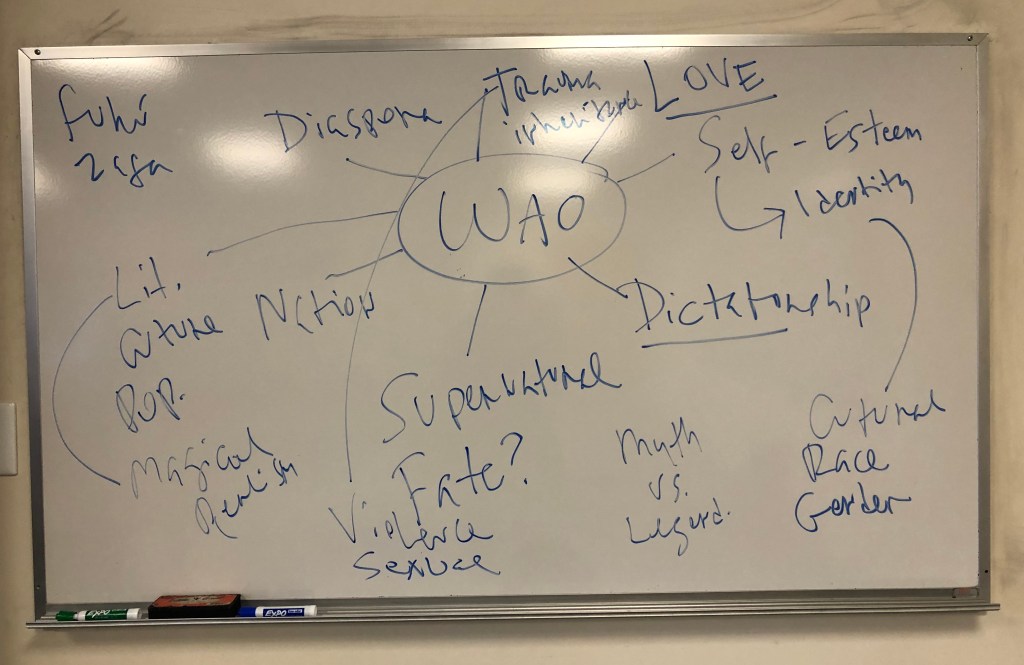 Fukú
Zafa
Diaspora
Trauma
inheritance
LOVE
Self-Esteem
Identity
WAO
Lit.
Culture
Pop.
Magical
Realism
Nation
Dictatorship
Supernatural
Fate?
Violence
Sexual
Myth
vs.
Legend.
Cultural
Race
Gender
EXPO
EXPO